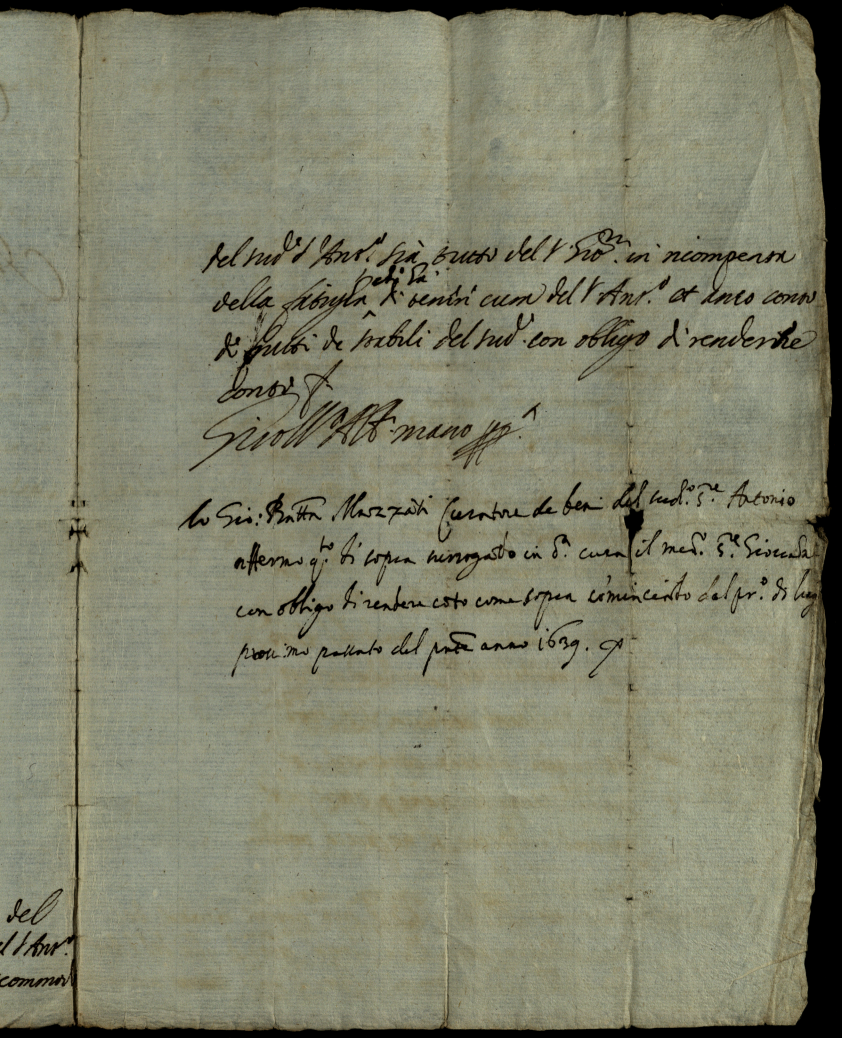 del sud.º S.r Ant.º sia tutto del S.r Gio: in ricompensa
della di tenersi cura del S.r Ant.º et anco conto
de frutti de stabili del sud.º con obligo di renderne
conto
mano pp.ª
Io Gio: Batta Mazzati Curatore de beni del sud.º S.re Antonio
affermo q.to di sopra surrogato in d.ª cura il med.º S.re
con obligo di rendere coto come sopra cominciato dal pr.º di lug
prossimo passato del pnte anno 1639.
del
el S.r Ant.º